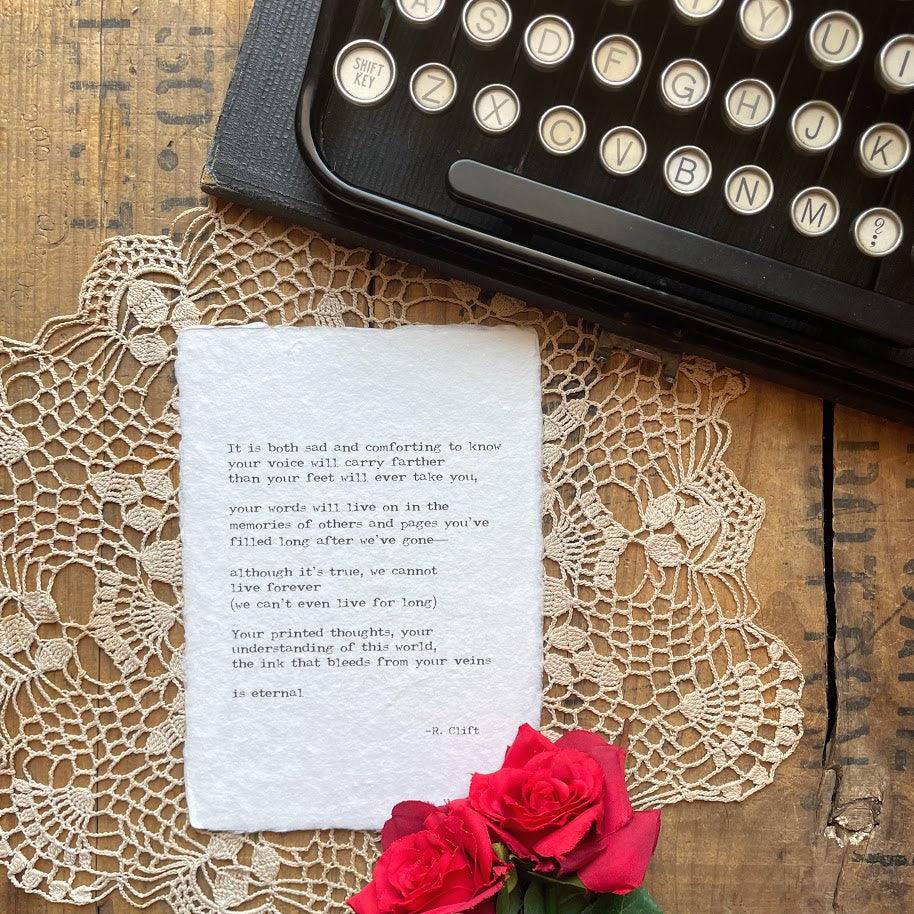 A S D F G H Y U I J K
SHIFT
KEY
Z X C V B N M ?
It is both sad and comforting to know
your voice will carry farther
than your feet will ever take you,
your words will live on in the
memories of others and pages you've
filled long after we've gone—
although it's true, we cannot
live forever
(we can't even live for long)
Your printed thoughts, your
understanding of this world,
the ink that bleeds from your veins
is eternal
-R. Clift